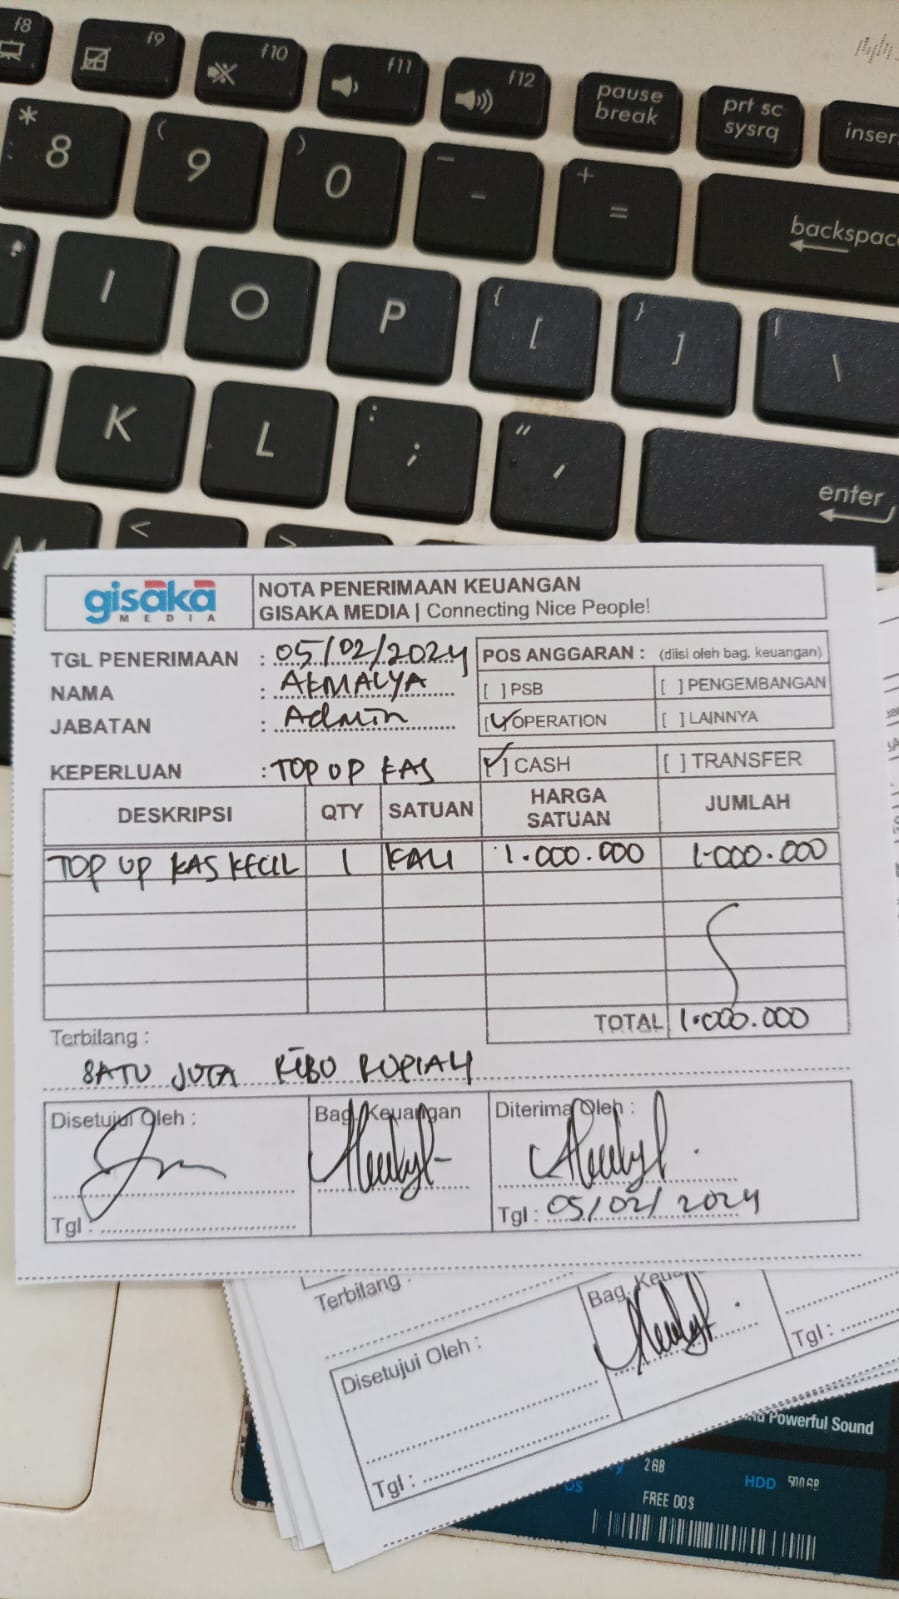 f8 f9 f10 f11 f12 pause break prt sc sysrq inser
* 8 ( 9 ) 0 _ - + = backspac
I O P { [ } ] | \
K L : ; " ' enter
M < >
gisaka MEDIA
NOTA PENERIMAAN KEUANGAN
GISAKA MEDIA | Connecting Nice People!
TGL PENERIMAAN : 05/02/2024
NAMA : AKMALYA
JABATAN : Admin
KEPERLUAN : TOP UP KAS
POS ANGGARAN : (diisi oleh bag. keuangan)
[ ] PSB [ ] PENGEMBANGAN
[✓] OPERATION [ ] LAINNYA
[✓] CASH [ ] TRANSFER
DESKRIPSI QTY SATUAN HARGA SATUAN JUMLAH
TOP UP KAS KECIL 1 KALI 1.000.000 1.000.000
TOTAL 1.000.000
Terbilang :
SATU JUTA RIBU RUPIAH
Disetujui Oleh : Bag. Keuangan Diterima Oleh :
Tgl : Tgl : 05/02/2024
Terbilang :
Disetujui Oleh : Bag. Keua
Tgl : Tgl :
Powerful Sound
2GB HDD 500GB
FREE DOS